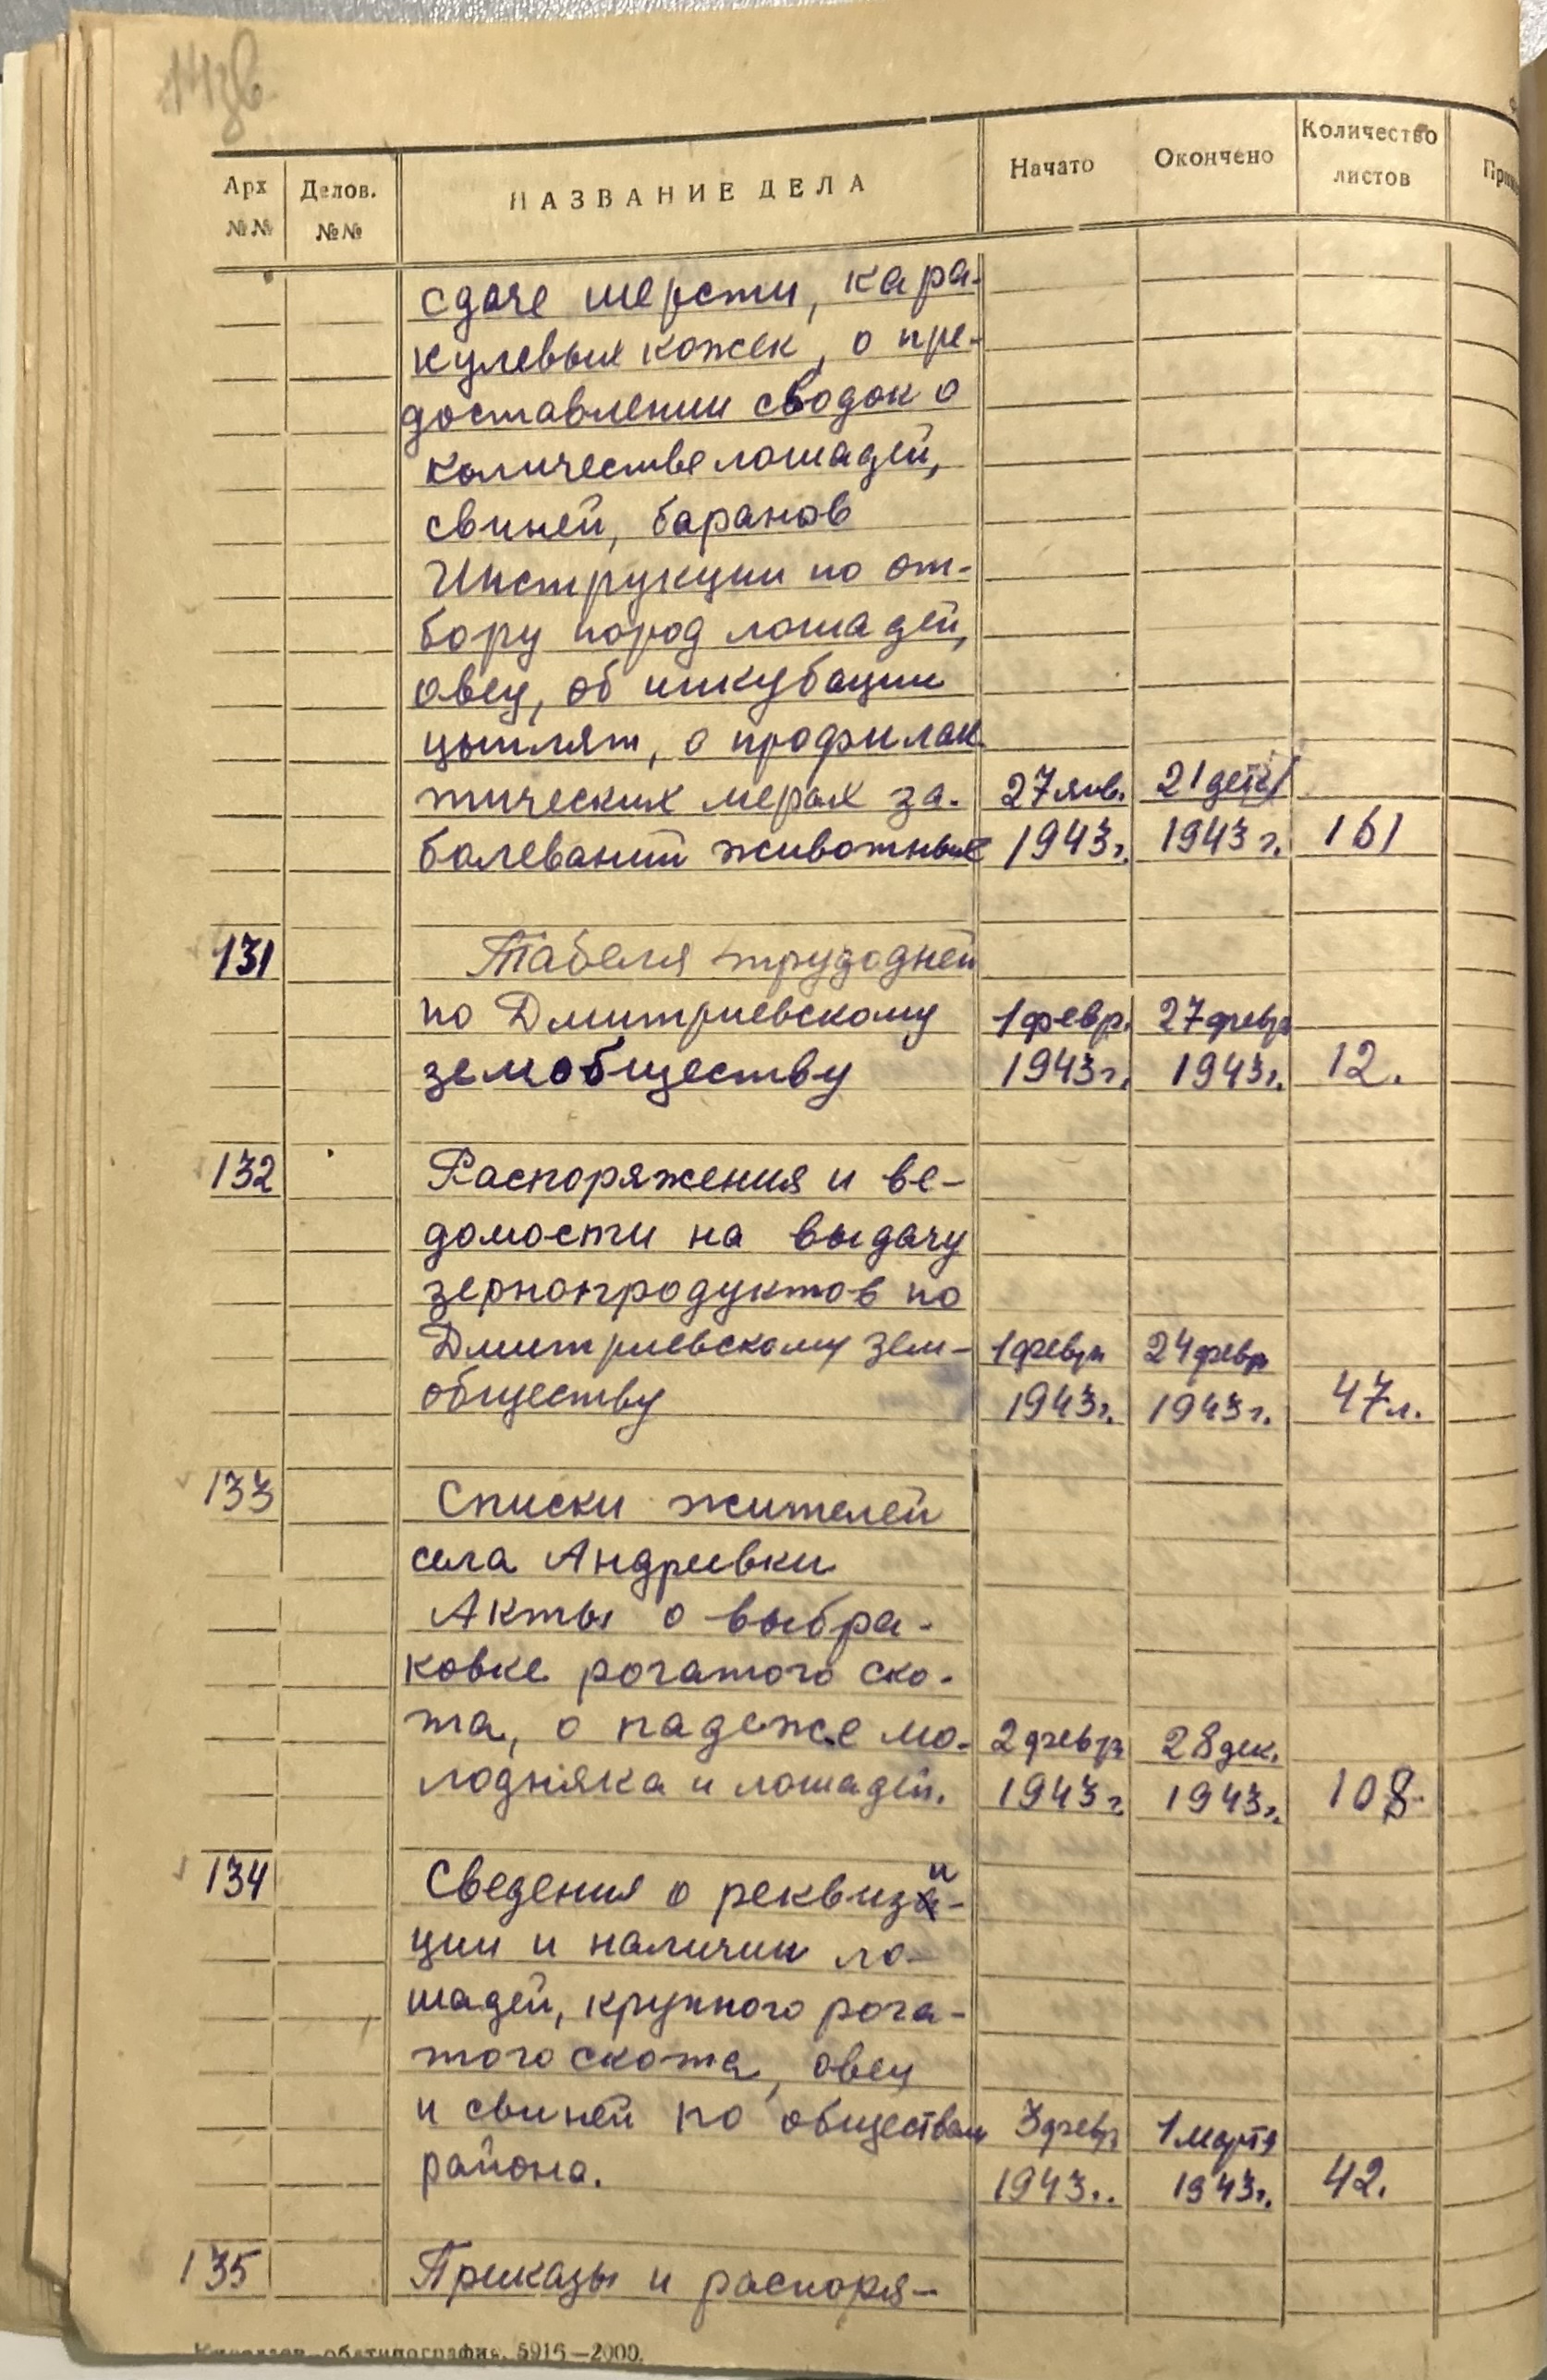 Арх №№ Делов. №№ НАЗВАНИЕ ДЕЛА Начато Окончено Количество листов
сдаче шерсти, кара-
кулевых кожек, о пре-
доставлении сводок о
количестве лошадей,
свиней, баранов
Инструкции по от-
бору пород лошадей,
овец, об инкубации
цыплят, о профилак
тических мерах за- 27 янв. 21 дек
болеваний животных 1943 г. 1943 г. 161
131 Табеля трудодней
по Дмитриевскому 1 февр. 27 февр
земобществу 1943 г. 1943 г. 12.
132 Распоряжения и ве-
домости на выдачу
зернопродуктов по
Дмитриевскому зем- 1 февр 24 февр
обществу 1943 г. 1943 г. 47 л.
133 Списки жителей
села Андреевки
Акты о выбра-
ковке рогатого ско-
та, о падеже мо- 2 февр 28 дек.
лодняка и лошадей. 1943 г. 1943 г. 108
134 Сведения о реквизи-
ции и наличии ло-
шадей, крупного рога-
того скота, овец
и свиней по обществам 3 февр 1 марта
района. 1943.. 1943 г. 42.
135 Приказы и распоря-
5915—2000.